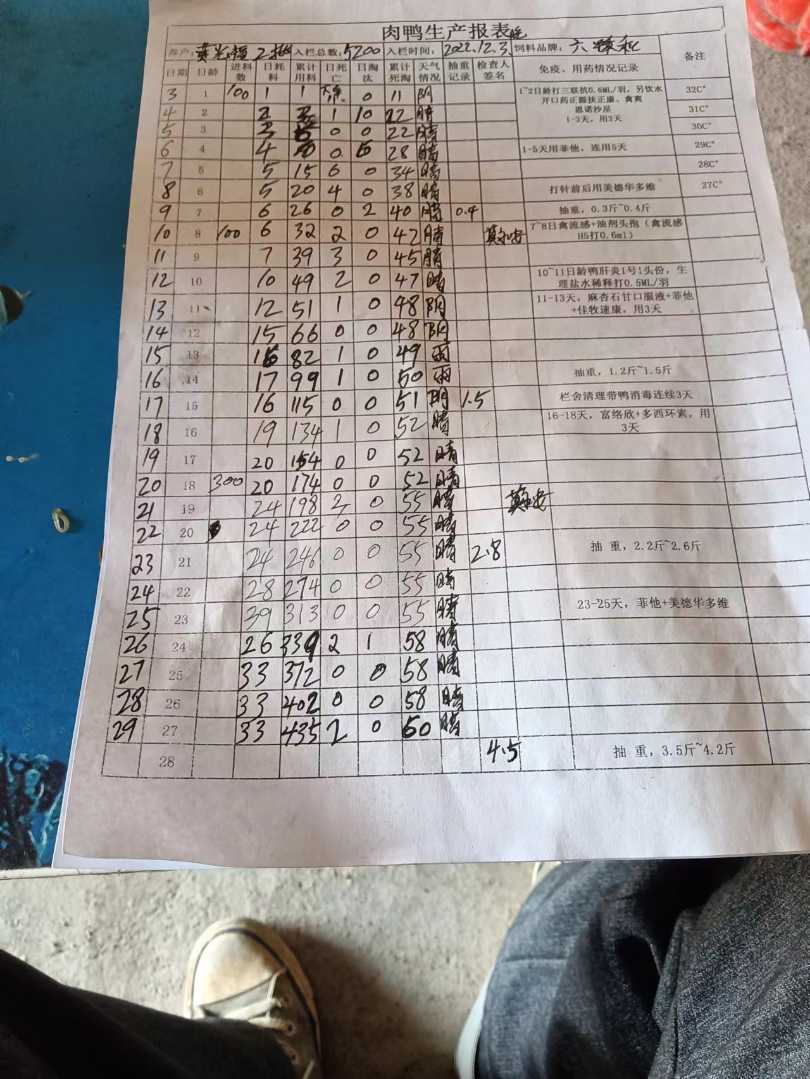 肉鸭生产报表
客户: 入栏总数:5200 入栏时间:2022.12.3. 饲料品牌:六 和
日期 日龄 进料数 日耗料 累计用料 日死亡 日淘汰 累计死淘 天气情况 抽重记录 检查人签名 免疫、用药情况记录 备注
3 1 100 1 1 0 11 阴 1~2日龄打三联抗0.6ML/羽,另饮水开口药正源扶正康、禽离 32C°
4 2 2 1 10 22 晴 恩诺沙星 31C°
5 3 0 0 22 晴 1-3天,用3天 30C°
6 4 4 0 6 28 晴 1-5天用菲他,连用5天 29C°
7 5 5 15 6 0 34 晴 28C°
8 6 5 20 4 0 38 晴 打针前后用美德华多维 27C°
9 7 6 26 0 2 40 晴 0.4 抽重,0.3斤~0.4斤
10 8 100 6 32 2 0 42 晴 7~8日禽流感+油剂头孢(禽流感H5打0.6ml)
11 9 7 39 3 0 45 晴
12 10 10 49 2 0 47 晴 10~11日龄鸭肝炎1号1头份,生理盐水稀释打0.5ML/羽
13 11 12 51 1 0 48 阴 11-13天,麻杏石甘口服液+菲他+佳牧速康,用3天
14 12 15 66 0 0 48 阴
15 13 16 82 1 0 49 雨
16 14 17 99 1 0 50 雨 抽重,1.2斤~1.5斤
17 15 16 115 0 0 51 阴 1.5 栏舍清理带鸭消毒连续3天
18 16 19 134 1 0 52 晴 16-18天,富络欣+多西环素,用3天
19 17 20 154 0 0 52 晴
20 18 300 20 174 0 0 52 晴
21 19 24 198 2 0 55 晴
22 20 24 222 0 0 55 晴
23 21 24 246 0 0 55 晴 2.8 抽 重,2.2斤~2.6斤
24 22 28 274 0 0 55 晴
25 23 39 313 0 0 55 晴 23-25天,菲他+美德华多维
26 24 26 339 2 1 58 晴
27 25 33 372 0 0 58 晴
28 26 33 402 0 0 58 晴
29 27 33 435 2 0 60 晴
28 4.5 抽 重,3.5斤~4.2斤